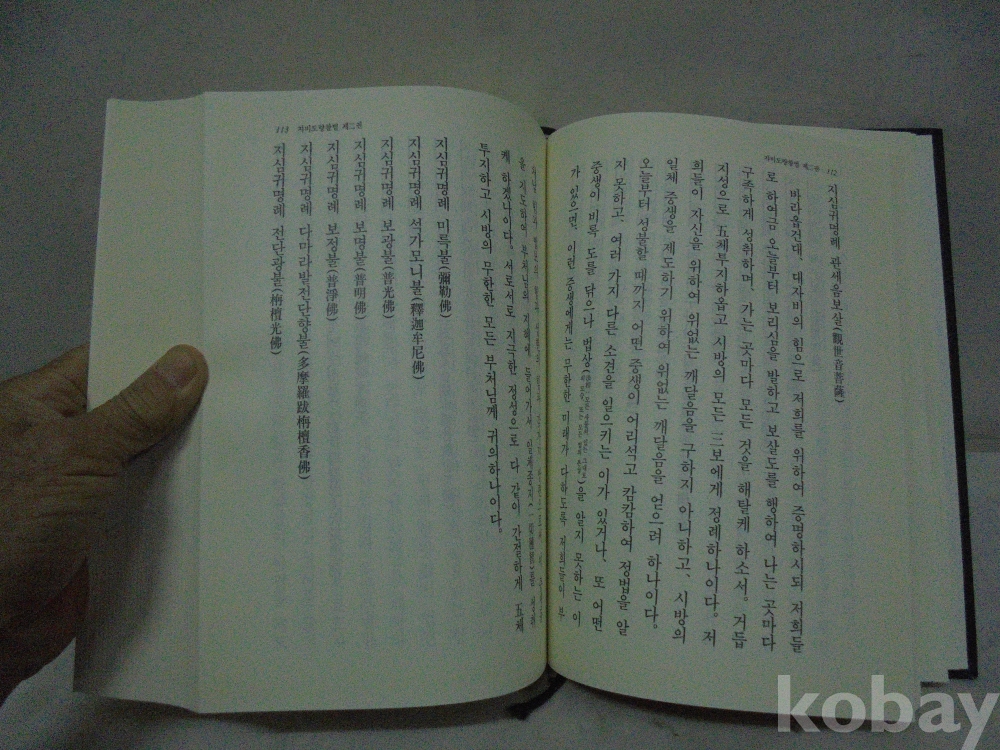 자비도량참법 제二권 112
지심귀명례 관세음보살(觀世音菩薩)
바라옵건대, 대자비의 힘으로 저희를 위하여 증명하시되 저희들
로 하여금 오늘부터 보리심을 발하고 보살도를 행하여 나는 곳마다
구족하게 성취하며, 가는 곳마다 모든 것을 해탈케 하소서. 거듭
지성으로 五체투지하옵고 시방의 모든 三보에게 정례하나이다. 저
희들이 자신을 위하여 위없는 깨달음을 구하지 아니하고, 시방의
일체 중생을 제도하기 위하여 위없는 깨달음을 얻으려 하나이다.
오늘부터 성불할 때까지 어떤 중생이 어리석고 캄캄하여 정법을 알
지 못하고, 여러 가지 다른 소견을 일으키는 이가 있거나, 또 어떤
중생이 비록 도를 닦으나 법상( )을 알지 못하는 이
가 있으면, 이런 중생에게는 무한한 미래가 다하도록 저희들이 부
113 자비도량참법 제二권
을 지도하여 부처님의 지혜에 들어가서
케 하겠나이다. 서로서로 지극한 정성으로 다 같이 간절하게 五체
투지하고 시방의 무한한 모든 부처님께 귀의하나이다.
지심귀명례 미륵불(彌勒佛)
지심귀명례 석가모니불(釋迦牟尼佛)
지심귀명례 보광불(普光佛)
지심귀명례 보명불(普明佛)
지심귀명례 보정불(普淨佛)
지심귀명례 다마라발전단향불(多摩羅跋栴檀香佛)
지심귀명례 전단광불(栴檀光佛)
kobay